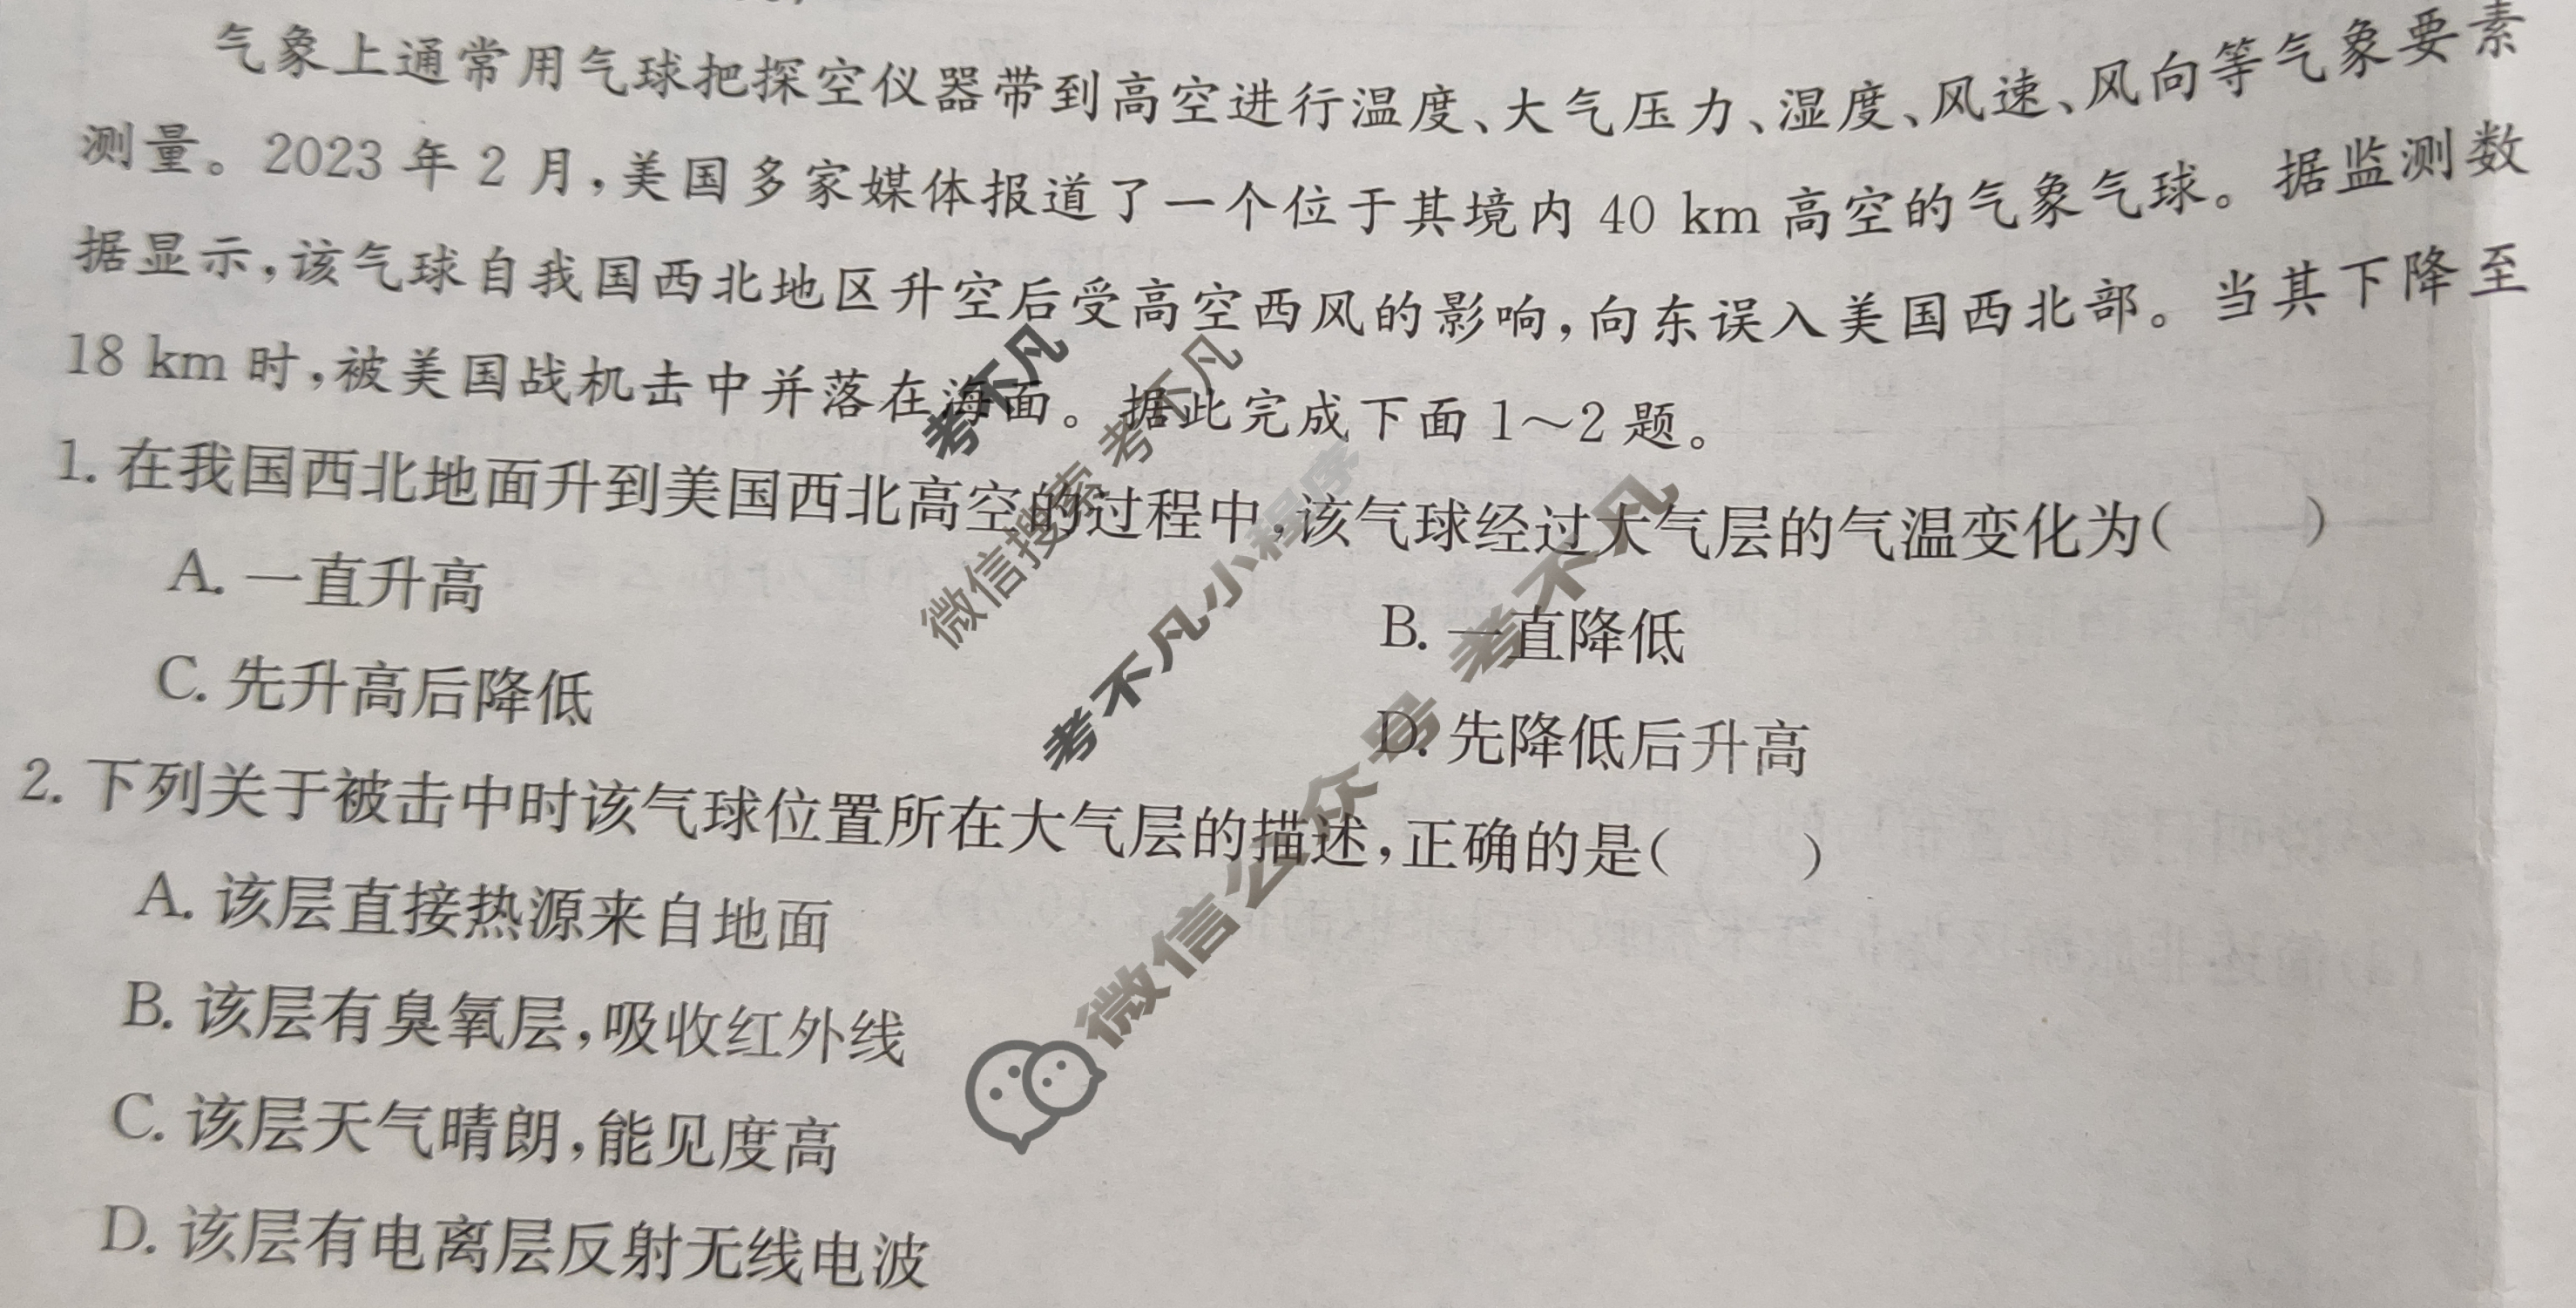 气象上通常用气球把探空仪器带到高空进行温度、大气压力、湿度、风速、风向等气象要素
测量。2023年2月,美国多家媒体报道了一个位于其境内40 km高空的气象气球。据监测数
据显示,该气球自我国西北地区升空后受高空西风的影响,向东误入美国西北部。当其下降至
18 km时,被美国战机击中并落在海面。据此完成下面1～2题。
1. 在我国西北地面升到美国西北高空的过程中,该气球经过大气层的气温变化为(　　)
A. 一直升高
B. 一直降低
C. 先升高后降低
D. 先降低后升高
2. 下列关于被击中时该气球位置所在大气层的描述,正确的是(　　)
A. 该层直接热源来自地面
B. 该层有臭氧层,吸收红外线
C. 该层天气晴朗,能见度高
D. 该层有电离层反射无线电波
考不凡
微信搜索 考不凡
考不凡小程序
微信公众号 考不凡